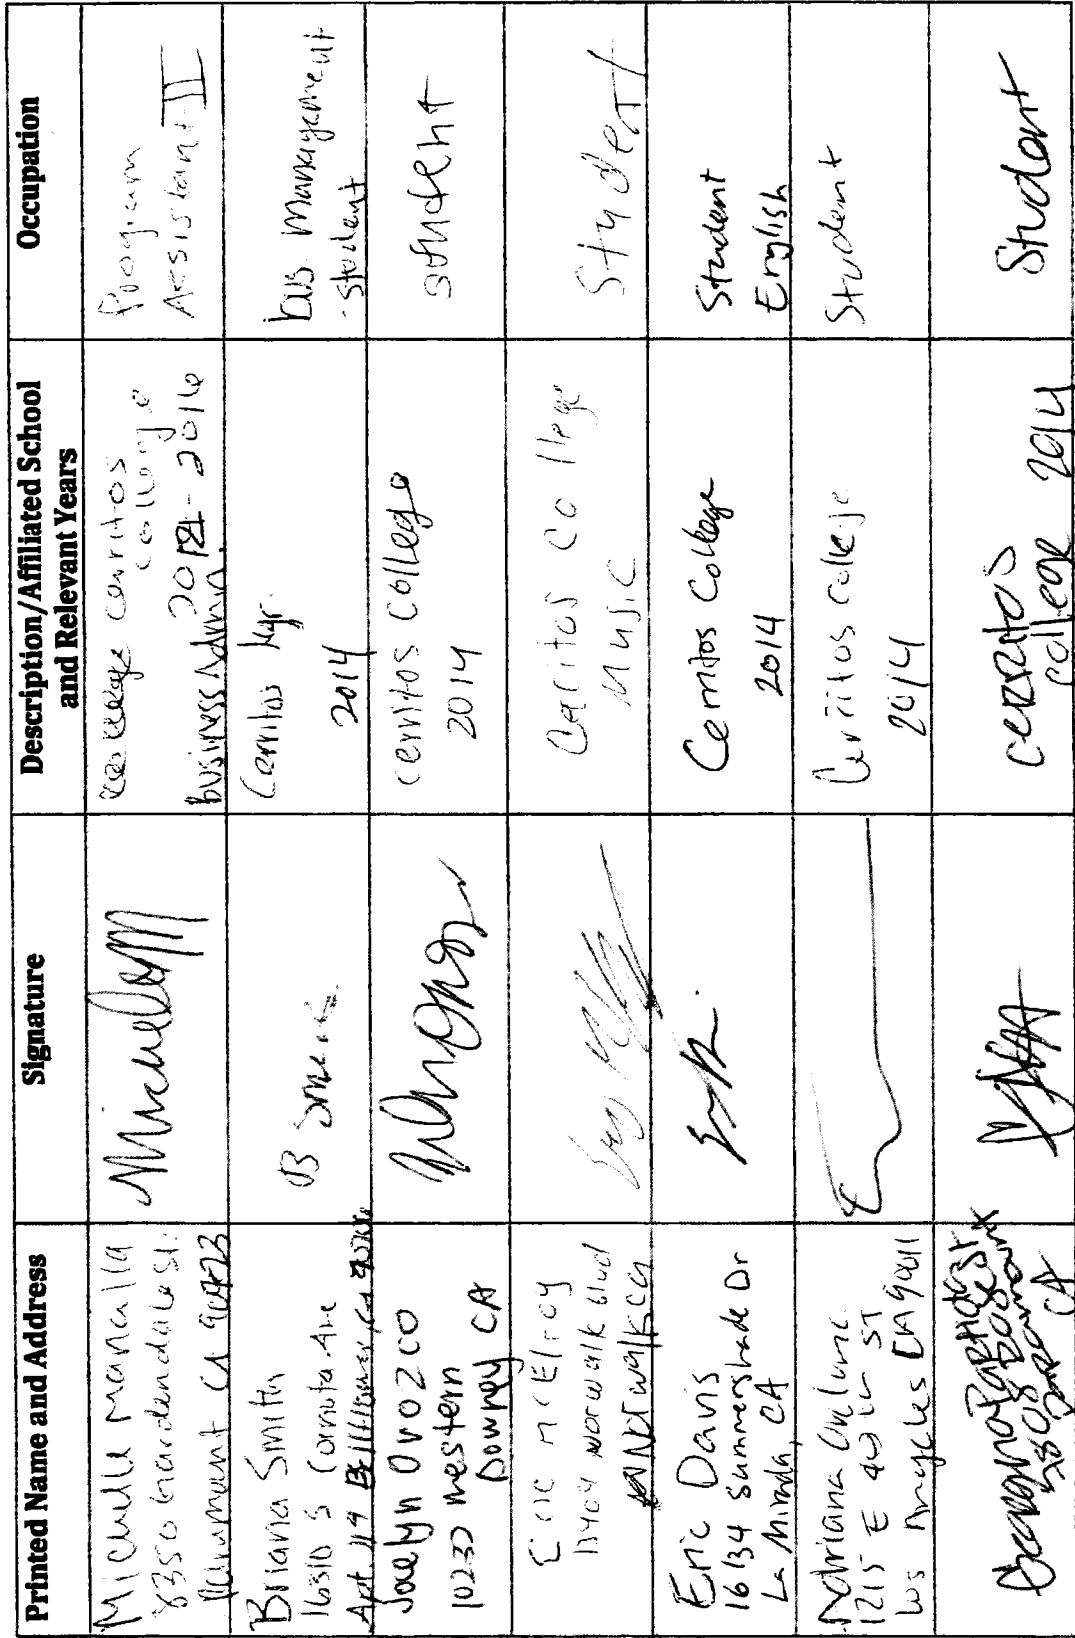 Printed Name and Address
Signature
Description/Affiliated School
and Relevant Years
Occupation
Michelle Mancilla
8350 Gardendale St.
Paramount CA 90723
cerritos
college
2014 - 2016
business Admn.
Program
Assistant II
Briana Smith
16310 S Cornuta Ave
Apt. 119 Bellflower, Ca
B Smith
Cerritos Mgr.
2014
bus. management
student
Jocelyn Orozco
10230 western
Downey CA
cerritos college
2014
student
Eric McElroy
13404 Norwalk blvd
Norwalk Ca
Cerritos College
Music
Student
Eric Davis
16134 Summershade Dr
La Mirada, CA
Cerritos College
2014
Student
English
Adriana
1215 E 49th ST
Los Angeles CA 90011
Cerritos college
2014
Student
CA
Cerritos
College 2014
Student